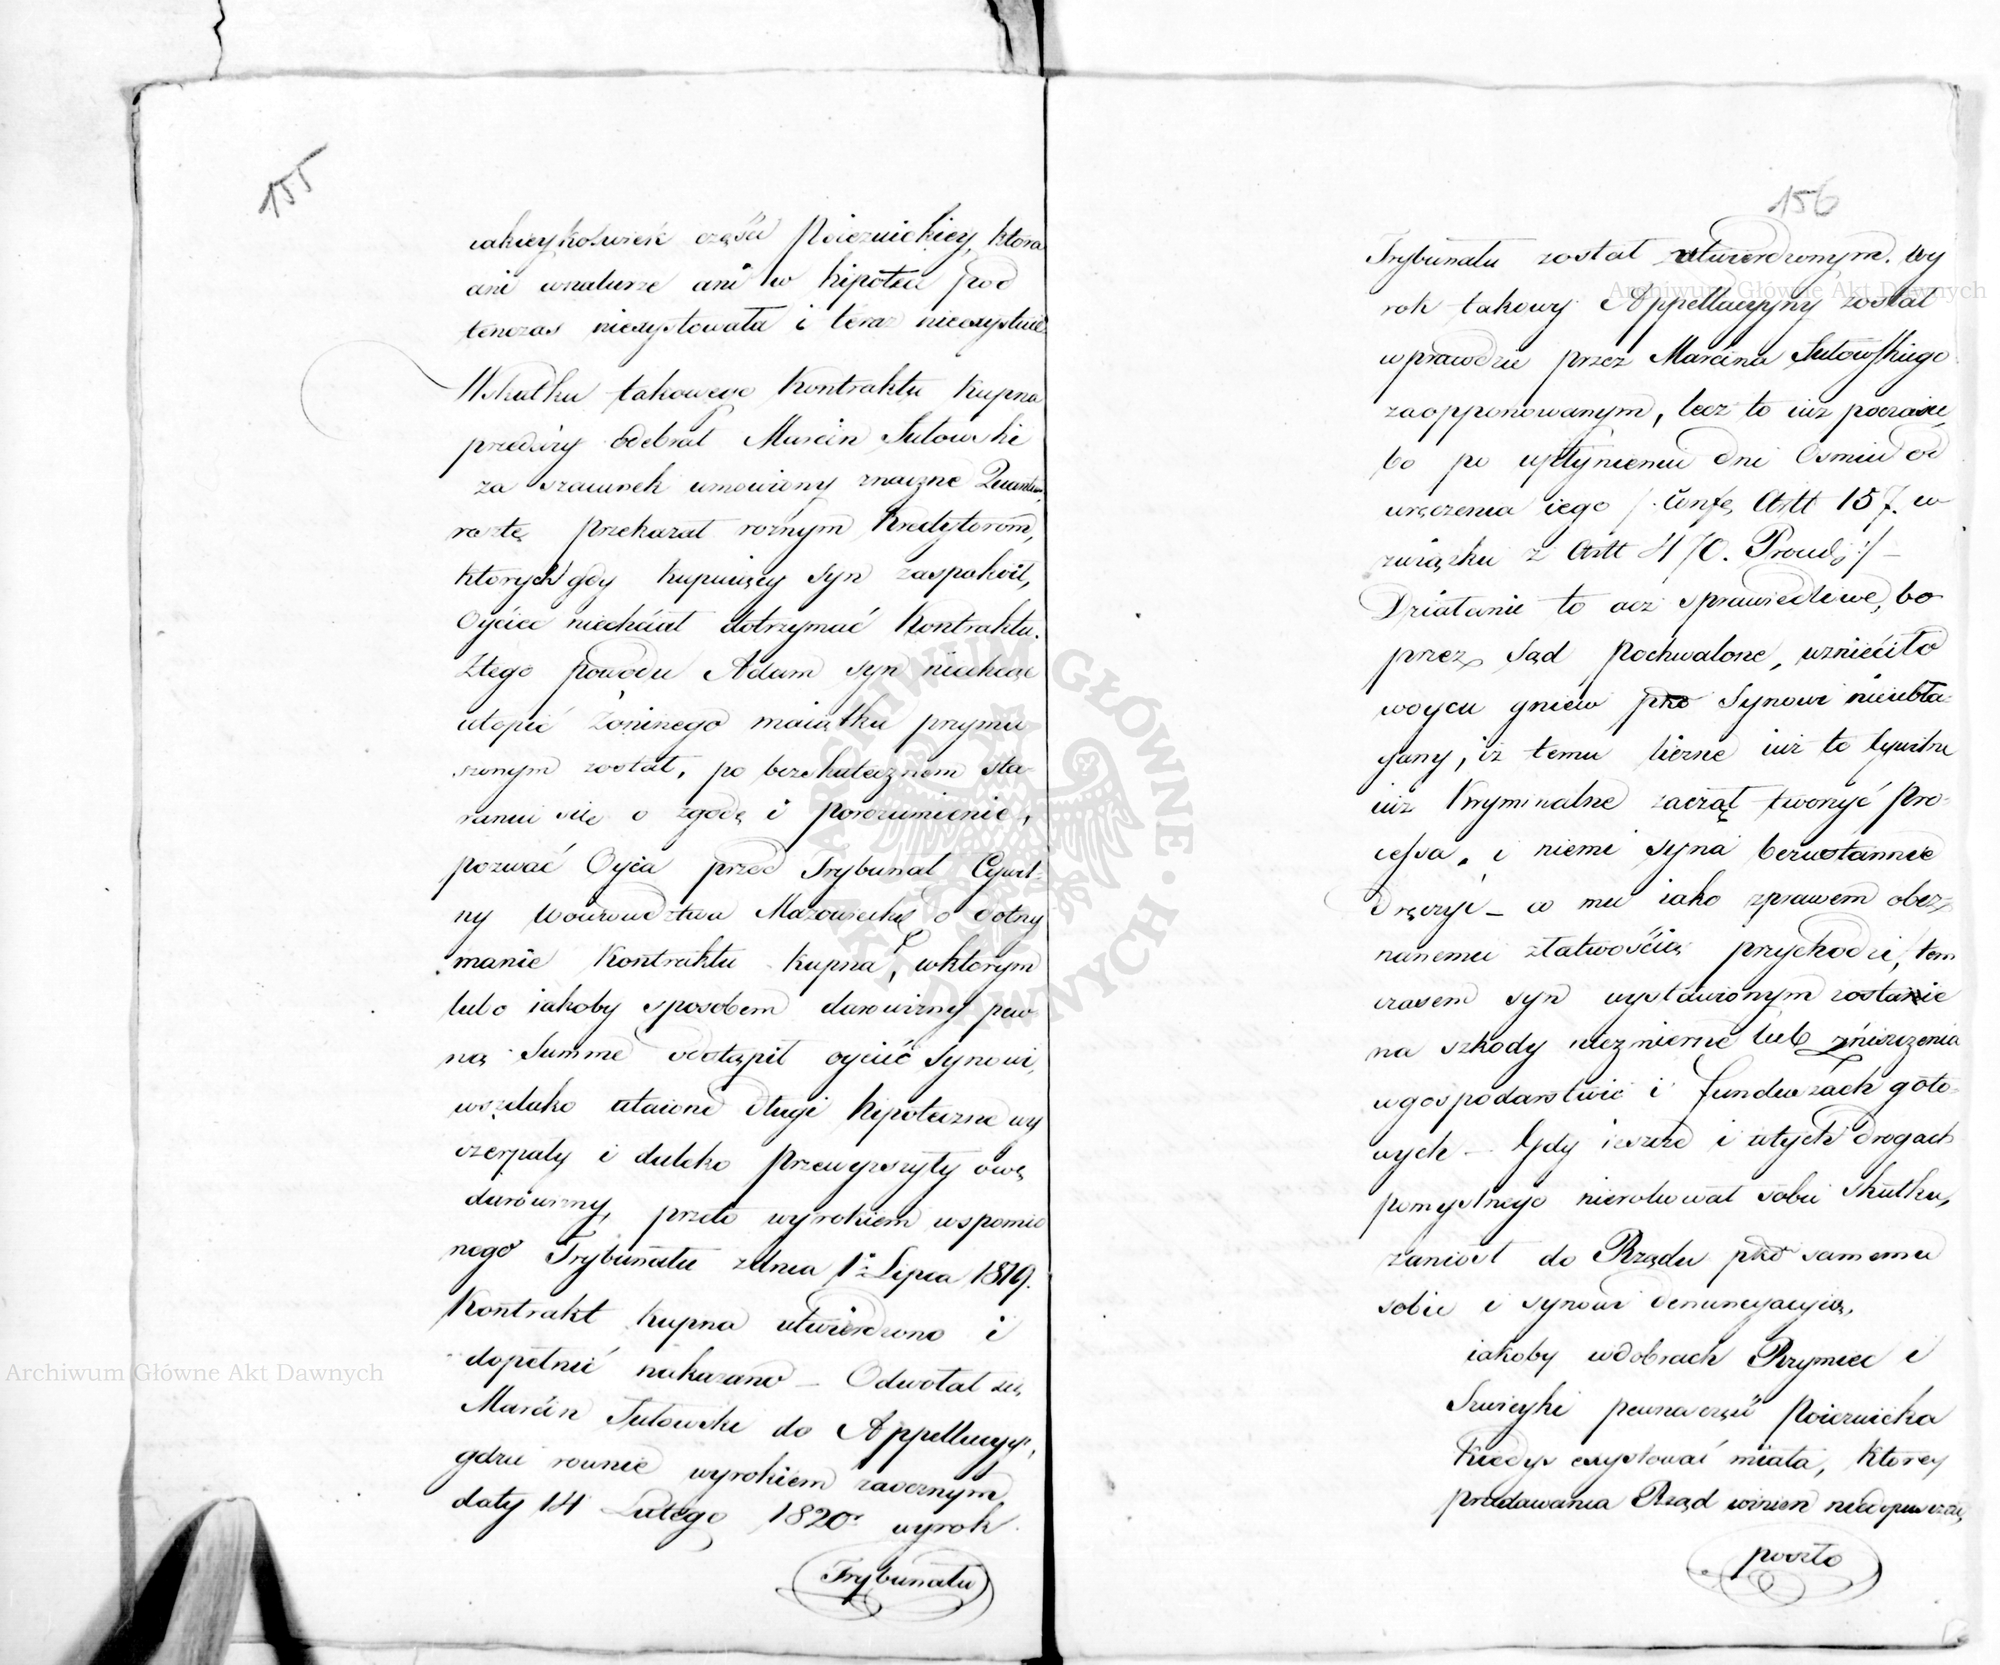 155
iakieykolwiek części Poiezuickiey, która
ani wnaturze ani w hipotece pod
tenczas nieexystowała i teraz nieexystuie
Wskutku takowego Kontraktu Kupna
przedaży odebrał Marcin Sutowski
za szacunek umowiony znaczne Quantum,
resztę przekazał rożnym Kredytorom,
których gdy kupuiący Syn zaspokoił,
Oyciec niechciał dotrzymać Kontraktu.
Ztego powodu Adam syn niechcąc
utopić Żoninego maiątku przymu
szonym został, po bezskutecznem sta-
raniu się o zgodę i porozumienie,
pozwać Oyca przed Trybunał Cywil-
ny Woiewodztwa Mazowieckieo o dotrzy
manie Kontraktu Kupna, wktorym
lubo iakoby sposobem darowizny pew-
ną Summę odstąpił oyciec Synowi,
wszelako utaione długi hipoteczne wy
czerpały i daleko przewyższyły ową
darowiznę, przeto wyrokiem wspomnio
nego Trybunału zdnia 1o Lipca 1819.
Kontrakt Kupna utwierdzono i
dopełnić nakazano – Odwołał się
Marcin Sutowski do Appellacyi,
gdzie rownie wyrokiem zaocznym
daty 14 Lutego 1820r wyrok
Trybunału
156
Trybunału został utwierdzonym. Wy
rok takowy Appellacyyny został
wprawdzie przez Marcina Sutowskiego
zaopponowanym, lecz to iuż poczasie,
bo po upłynieniu dni Osmiu od
wręczenia iego /: Conf. Artt 157. w
związku z Artt 470. Proced: :/ –
Działanie to acz sprawiedliwe, bo
przez Sąd pochwalone, wznieciło
woycu gniew pko Synowi nieubła-
gany, iż temu liczne iuż to Cywilne
iuż Kryminalne zaczął tworzyć Pro-
cessa, i niemi syna bezustannie
dręczyć – co mu iako zprawem obez-
nanemu złatwością przychodzi, tem
czasem syn wystawionym zostanie
na szkody niezmierne lub zniszczenia
wgospodarstwie i funduszach goto-
wych – Gdy ieszcze i wtych drogach
pomyslnego nierokował sobie Skutku,
zaniosł do Rządu pko samemu
sobie i synowi denuncyacyią,
iakoby wdobrach Rzymiec i
Szwieyki pewna część Poiezuicka
Kiedyś exystować miała, Ktorey
przedawania Rząd winien niedopuszczać,
poszło
Archiwum Główne Akt Dawnych
Archiwum Główne Akt Dawnych
ARCHIWUM GŁÓWNE AKT DAWNYCH